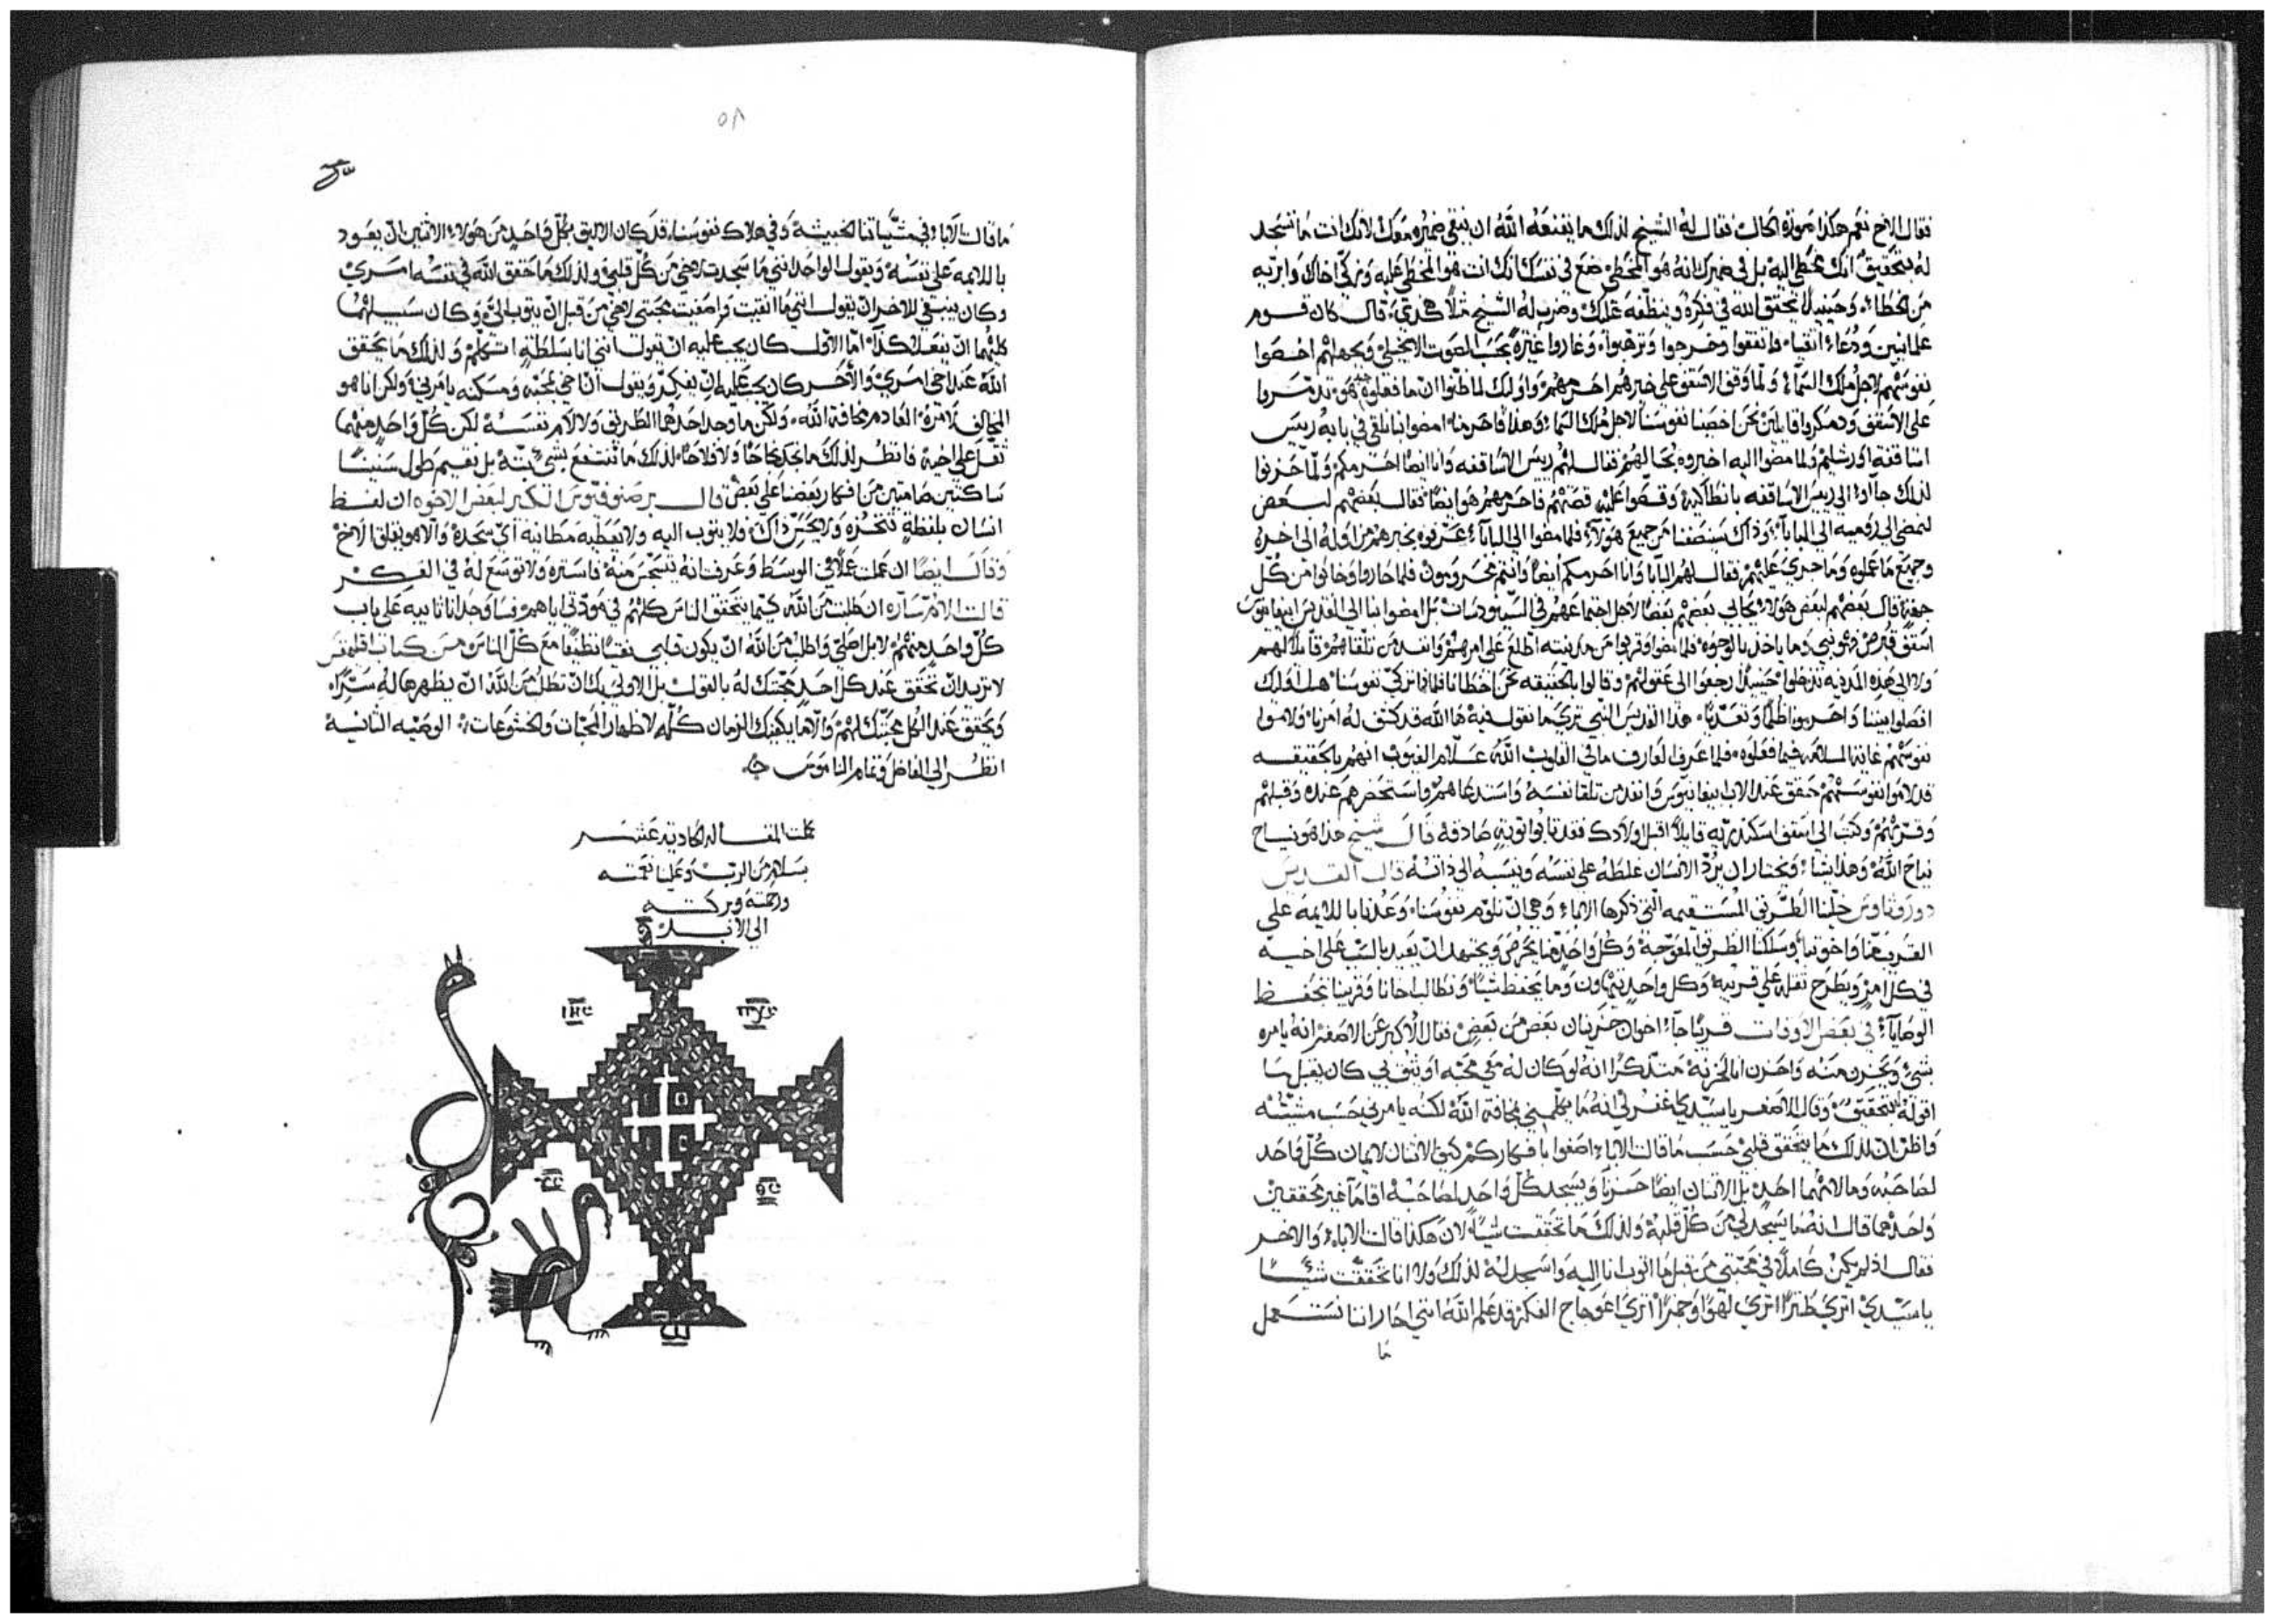 فقال الاخ نعم هكذا هو فقال له الشيخ لذلك ما يقنعه الله ان ينقي ضميره معك لانك انت ما تسجد
له بتحقيق انك مخطي اليه بل في ضميرك انه هو المخطي ضع في نفسك انك انت هو المخطي عليه وزكي اخاك وابريه
من الخطاء وحينيذ يحقق الله في فكره وينظفه عليك وضرب له الشيخ مثلا هكذي قال كان قوم
علمانيين ودعاء اتقياء فاتفقوا وخرجوا وترهبوا وغاروا غيرة بحسب الصوت الانجيلي وبجهلهم اخصوا
نفوسهم لاجل ملك السماء ولما وقف الاسقف على خبرهم احرمهم واوليك لما ظنوا ان ما فعلوه هو تذمروا
على الاسقف قايلين نحن اخصينا نفوسنا لاجل ملك السماء وهذا فاحرمنا امضوا بنا نلقي في بابه ريس
اساقفة اورشليم ولما مضوا اليه اخبروه بحالهم فقال لهم ريس الاساقفه وانا ايضا احرمكم ولما حزنوا
لذلك جاوا الى ريس الاساقفه بانطاكية وقصوا عليه قصتهم فاحرمهم هو ايضا فقال بعضهم لبعض
لنمضي الى روميه الى البابا وذاك ينصفنا من جميع هولاء فلما مضوا الى البابا عرفوه بخبرهم من اوله الى اخره
وجميع ما عملوه وما جري عليهم فقال لهم البابا وانا احرمكم ايضا وانتم محرومون فلما حاروا وخابوا من كل
جهة قال بعضهم لبعض هولاء يحابي بعضهم بعضا لاجل اجتماعهم في السينودسات بل امضوا بنا الى القديس ابيفانيوس
اسقف قبرص فهو نبي وما ياخذ بالوجوه فلما مضوا وقربوا من مدينته اطلع على امرهم وانفذ من تلقاهم قايلا لهم
ولا الى هذه المدينة تدخلوا حينيذ رجعوا الى عقولهم وقالوا بالحقيقه نحن اخطانا فلماذا نزكي نفوسنا هل اوليك
افصلوا بيننا واحرمونا ظلما وتعديا هذا القديس النبي تري ما نقول فيه ها الله قد كشف له امرنا ولاموا
نفوسهم غاية الملامه فيما فعلوه فلما عرف العارف ما في القلوب الله علام الغيوب انهم بالحقيقه
قد لاموا نفوسهم حقق عند الاب ابيفانيوس وانفذ من تلقا نفسه واستدعاهم واستحضرهم عنده وقبلهم
وقربهم وكتب الى اسقف اسكندريه قايلا اقبل اولادك فقد تابوا توبة صادقة قال شيخ هذا هو نياح
نياح الله وهذا يشا ويختار ان يرد الانسان غلطه على نفسه وينسبه الى ذاته قال القديس
دوروتاوس خلينا الطريق المستقيمه التي ذكرها الاباء وهي ان نلوم نفوسنا وعدنا باللايمه على
القريب منا واخوتنا وسلكنا الطريق المعوجة وكل واحد منا يحرص ويجتهد ان يعيد بالسبب على اخيه
في كل امر ويطرح ثقله على قريبه وكل واحد يتهاون وما يحفظ شيا ونطالب اخانا وقريبنا بحفظ
الوصايا في بعض الاوقات قديما جاء اخوان حزينان بعض من بعض فقال الاكبر عن الاصغر انه يامره
بشي ويحزن منه واحزن انا لحزنه متذكرا انه لو كان له في محبه او يثق بي كان يقبل ما
اقوله بتحقيق وقال الاصغر يا سيدي اغفر لي انه ما يكلمني بمخافة الله لكنه يامرني حسب مشيته
واظن ان لذلك ما يتحقق قلبي حسب ما قالت الاباء اصغوا بافكاركم كيف الاثنان لايمان كل واحد
لصاحبه وما لام نفسه احد بل الاثنان ايضا حزينا ويسجد كل واحد لصاحبه اقاما غير محققين
واحدهما قال انه ما يسجد لي من كل قلبه ولذلك ما تحققت شيا لان هكذا قالت الاباء والاخر
فقال اذ لم يكن كاملا في محبتي من قبل ما اتوب انا اليه واسجد له لذلك ولا انا تحققت شيا
يا سيدي اتري طنزا اتري لهوا اتري اعوجاج الفكر قد علم الله انني احار اننا نستعمل
ما
٥٨
ما قالت الاباء في مشياتنا الخبيثة وفي هلاك نفوسنا قد كان الاليق بكل واحد من هولاء الاثنين ان يعود
باللايمه على نفسه ويقول الواحد انني ما سجدت لاخي من كل قلبي ولذلك ما حقق الله في نفسه امري
وكان ينبغي للاخر ان يقول انني ما انقيت واصفيت محبتي لاخي من قبل ان يتوب الي وكان سبيلهما
كليهما ان يفعلا هكذا اما الاول كان يجب عليه ان يقول انني انا بسلطة اتكلم ولذلك ما يحقق
الله عند اخي امري والاخر كان يجب عليه ان يفكر ويقول ان اخي بمحبة ومسكنه يامرني ولكن انا هو
المخالف لامره العادم مخافة الله ولكن ما وجد احدهما الطريق ولا لام نفسه لكن كل واحد منهما
ثقل على اخيه فانظر لذلك ما نجد نجاحا ولا فلاحا لذلك ما ننتفع بشي بته بل نقيم طول سنيننا
ساكتين صامتين من افكار بعضنا على بعض قال برصنوفيوس الكبير لبعض الاخوه ان لفظ
انسان بلفظة تنخزه ولا يحس ذاك ولا يتوب اليه ولا يعطيه مطانيه اي سجدة والا هو يقلق الاخ
وقال ايضا ان عملت عملا في الوسط وعرفت انه يتسجس منه فاستره ولا توسع له في الفكر
قالت الام سارة ان طلبت من الله كيما يتحقق الناس كلهم في مودتي اياهم فساوجد انا تايبه على باب
كل واحد منهم لا بل اصلي واطلب من الله ان يكون قلبي نقيا نظيفا مع كل الناس من كتاب اقليمقس
لا تريد ان تحقق عند كل احد محبتك له بالقول بل الاولي بك ان تطلب من الله ان يظهرها له سرا
ويحقق عند الكل محبتك لهم والا ما يكفيك الزمان كله لاظهار المحبات والخشوعات الوصيه الثانية
انظر الى الفاضل وتمام الناموس
كملت المقاله الحادية عشر
بسلام من الرب وعلينا نعمته
ورحمته وبركته
الى الابد
IHC
ΠΧC
ΘC